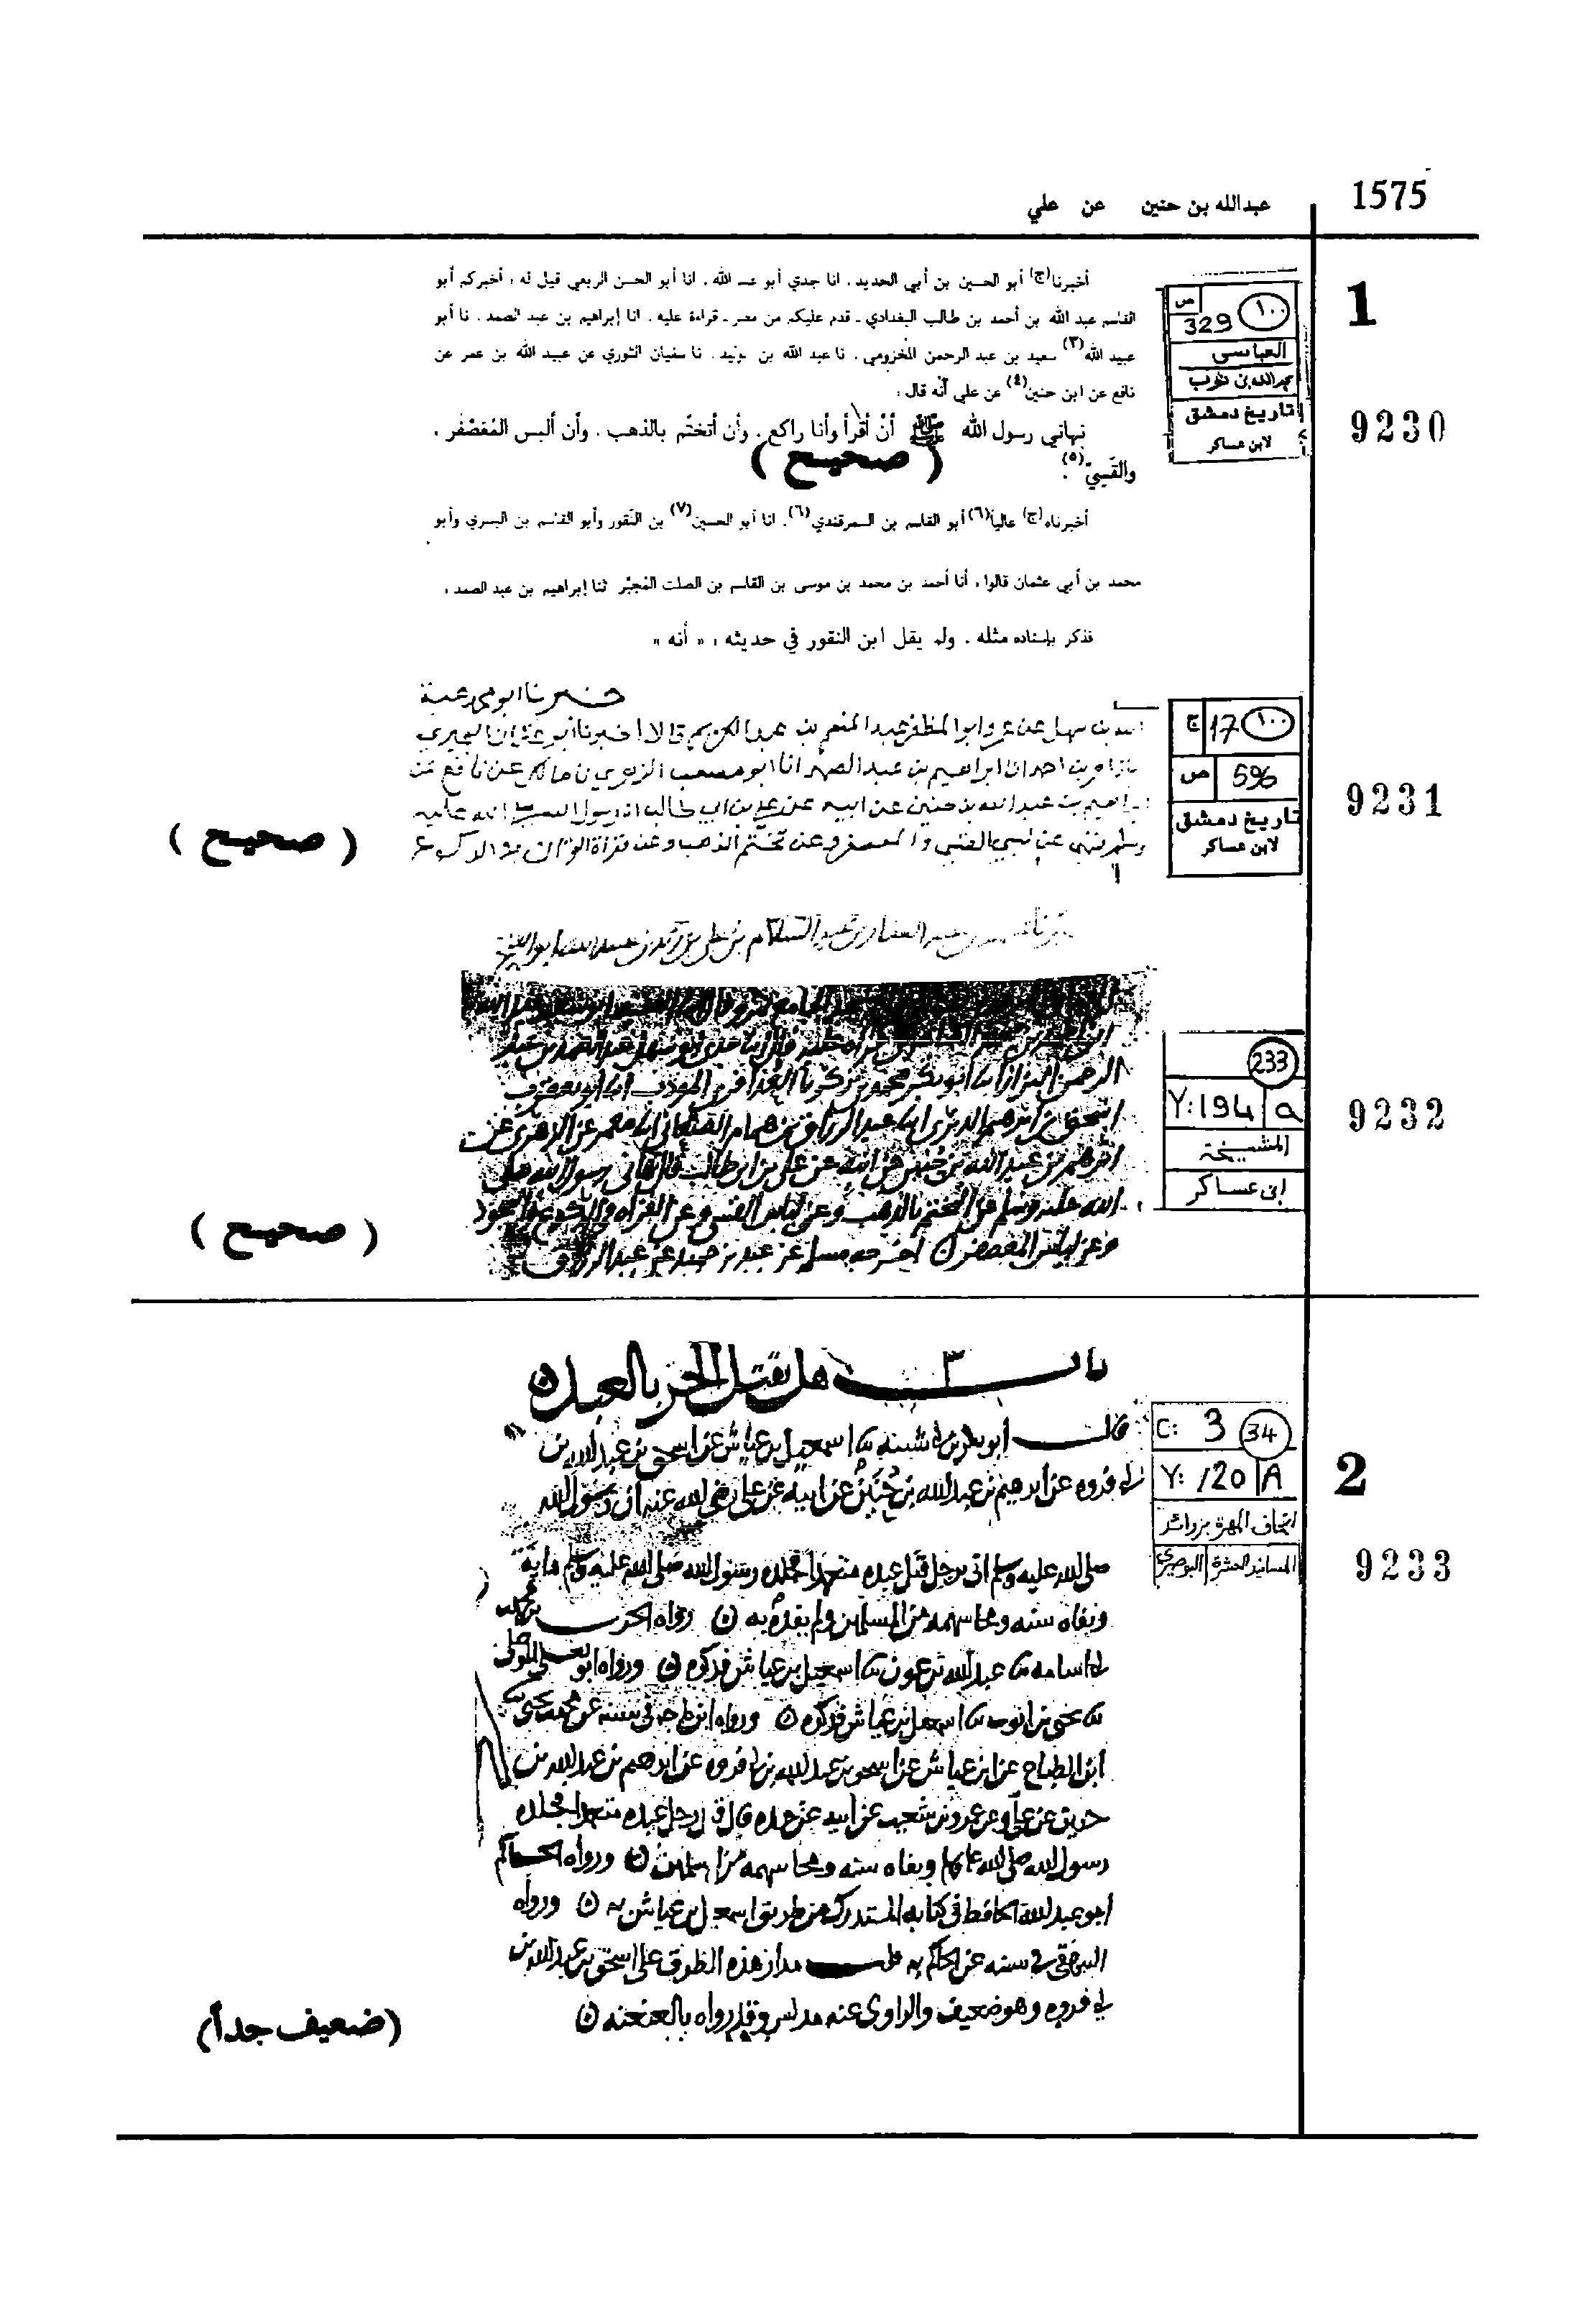 1575
عبدالله بن حنين عن علي
1
ص
١٠٠
329
العباسي
عبدالله بن
تاريخ دمشق
لابن عساكر
9230
أخبرنا(ج) أبو الحسين بن أبي الحديد، انا جدي أبو عبد الله، انا أبو الحسن الربعي قيل له: أخبركم أبو
القاسم عبد الله بن أحمد بن طالب البغدادي ـ قدم عليكم من مصر ـ قراءة عليه، انا إبراهيم بن عبد الصمد، نا أبو
عبيد الله(٣) سعيد بن عبد الرحمن المخزومي، نا عبد الله بن الوليد، نا سفيان الثوري عن عبيد الله بن عمر عن
نافع عن ابن حنين(٤) عن علي أنه قال:
نهاني رسول الله ﷺ أنْ أقرأ وأنا راكع، وأن أتختّم بالذهب، وأن ألبس المُعَصْفَر،
والقَسِيّ(٥).
( صحيح )
أخبرناه(ج) عالياً(٦) أبو القاسم بن السمرقندي(٦)، انا أبو الحسين(٧) بن النّقور وأبو القاسم بن البسري وأبو
محمد بن أبي عثمان قالوا: أنا أحمد بن محمد بن موسى بن القاسم بن الصلت المُجَبّر ثنا إبراهيم بن عبد الصمد:
فذكر بإسناده مثله. ولم يقل ابن النقور في حديثه: « أنه »
١٠٠
17
ج
596
ص
تاريخ دمشق
لابن عساكر
9231
خبرنا ابو محمد هبة
الله بن سهل بن عمر وابو المظفر عبد المنعم بن عبد الكريم قالا اخبرنا ابو عثمان البحيري
زاهر بن احمد انا ابراهيم بن عبد الصمد انا ابو مصعب الزهري نا مالك عن نافع عن
ابراهيم بن عبد الله بن حنين عن ابيه عن علي بن ابي طالب ان رسول الله صلى الله عليه
وسلم نهى عن لبس القسي والمعصفر وعن تختم الذهب وعن قراة القران في الركوع
( صحيح )
233
Y: 194 a
المشيخة
ابن عساكر
9232
عبد الغفار بن عبد السلام بن علي بن
الرحمن البزاز ابنا ابو بكر محمد بن زكريا العذافري المؤدب ابنا ابو يعقوب
اسحق بن ابرهيم الدبري ابنا عبد الرزاق بن همام الصنعاني ابنا معمر عن الزهري عن
ابرهيم بن عبد الله بن حنين عن ابيه عن علي بن ابي طالب قال نهاني رسول الله صلى
الله عليه وسلم عن التختم بالذهب وعن لباس القسي وعن القراة في الركوع والسجود
وعن لباس المعصفر اخرجه مسلم عن عبد بن حميد عن عبد الرزاق
( صحيح )
2
C: 3
34
Y: 120 A
اتحاف المهرة بزوائد
المسانيد العشرة البوصيري
9233
باب ٣ هل يقتل الحر بالعبد
قال أبو بكر بن ابي شيبه ثنا اسمعيل بن عياش عن اسحق بن عبد الله بن
ابي فروه عن ابرهيم بن عبد الله بن حنين عن ابيه عن علي رضي الله عنه ان رسول الله
صلى الله عليه وسلم اتي برجل قتل عبده متعمدا فجلده رسول الله صلى الله عليه وسلم مايه
ونفاه سنه ومحا سهمه من المسلمين ولم يقده به رواه الحرث بن محمد
بن ابي اسامه ثنا عبد الله بن عون ثنا اسمعيل بن عياش فذكره ورواه ابو يعلى الموصلي
ثنا يحيى بن ايوب ثنا اسمعيل بن عياش فذكره ورواه ابن ماجه في سننه عن محمد بن يحيى ثنا
ابن الطباع عن ابن عياش عن اسحق بن عبد الله بن ابي فروه عن ابرهيم بن عبد الله بن
حنين عن علي وعن عمرو بن شعيب عن ابيه عن جده قال قتل رجل عبده متعمدا فجلده
رسول الله صلى الله عليه وسلم ونفاه سنه ومحا سهمه من المسلمين ورواه الحاكم
أبو عبد الله الحافظ في كتابه المستدرك من طريق اسمعيل بن عياش به ورواه
البيهقي في سننه عن الحاكم به قلت مدار هذه الطرق على اسحق بن عبد الله بن
ابي فروه وهو ضعيف والراوي عنه مدلس وقد رواه بالعنعنه
(ضعيف جداً)